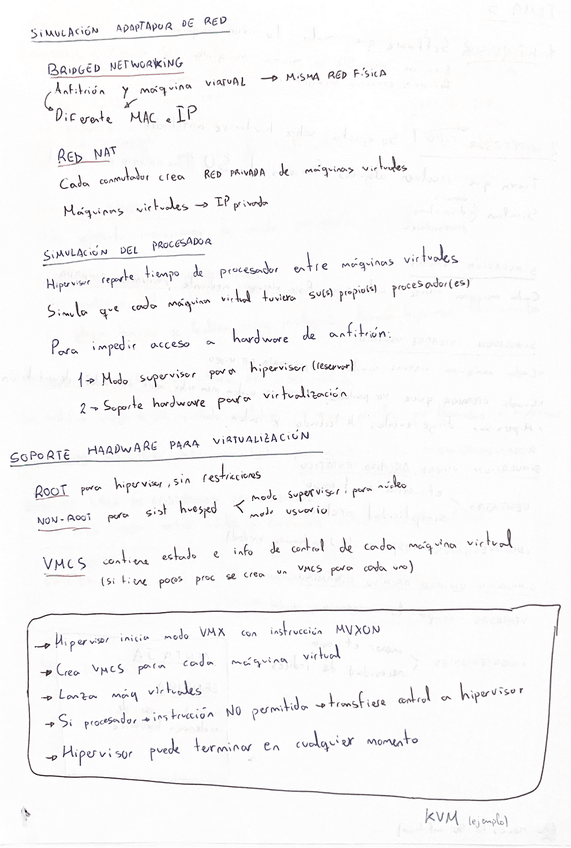 SIMULACIÓN ADAPTADOR DE RED
BRIDGED NETWORKING
Anfitrión y máquina VIRTUAL → MISMA RED FÍSICA
Diferente MAC e IP
RED NAT
Cada conmutador crea RED PRIVADA de máquinas virtuales
Máquinas virtuales → IP privada
SIMULACIÓN DEL PROCESADOR
Hipervisor reparte tiempo de procesador entre máquinas virtuales
Simula que cada máquina virtual tuviera su(s) propio(s) procesador(es)
Para impedir acceso a hardware de anfitrión:
1→ Modo supervisor para hipervisor (reservar)
2→ Soporte hardware para virtualización
SOPORTE HARDWARE PARA VIRTUALIZACIÓN
ROOT para hipervisor, sin restricciones
NON-ROOT para sist huesped < modo supervisor: para núcleo
modo usuario
VMCS contiene estado e info de control de cada máquina virtual
(si tiene proc se crea un VMCS para cada uno)
→ Hipervisor inicia modo VMX con instrucción MVXON
→ Crea VMCS para cada máquina virtual
→ Lanza máq virtuales
→ Si procesador → instrucción NO permitida → transfiere control a hipervisor
→ Hipervisor puede terminar en cualquier momento
KVM (ejemplo)